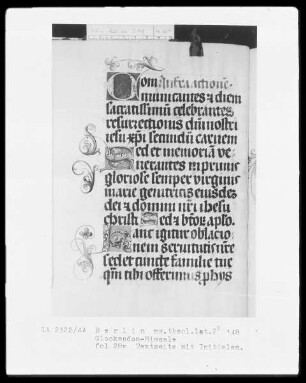 Com Infra actione
municantes & diem
sacratissimum celebrantes
resurrectionis dni nostri
iesu xpi secundum carnem
Sed et memoriam ve
nerantes in primis
gloriose semper virginis
marie genitricis eiusdez
dei & domini nri ihesu
christi Sed & btor aplo
anc igitur oblatio
nem servitutis nre
sed et cuncte familie tue
qm tibi offerimus p hys
LA 2322/44 Berlin ms.theol.lat.2° 148
Glockendon-Missale
fol 28v Textseite mit Initialen.